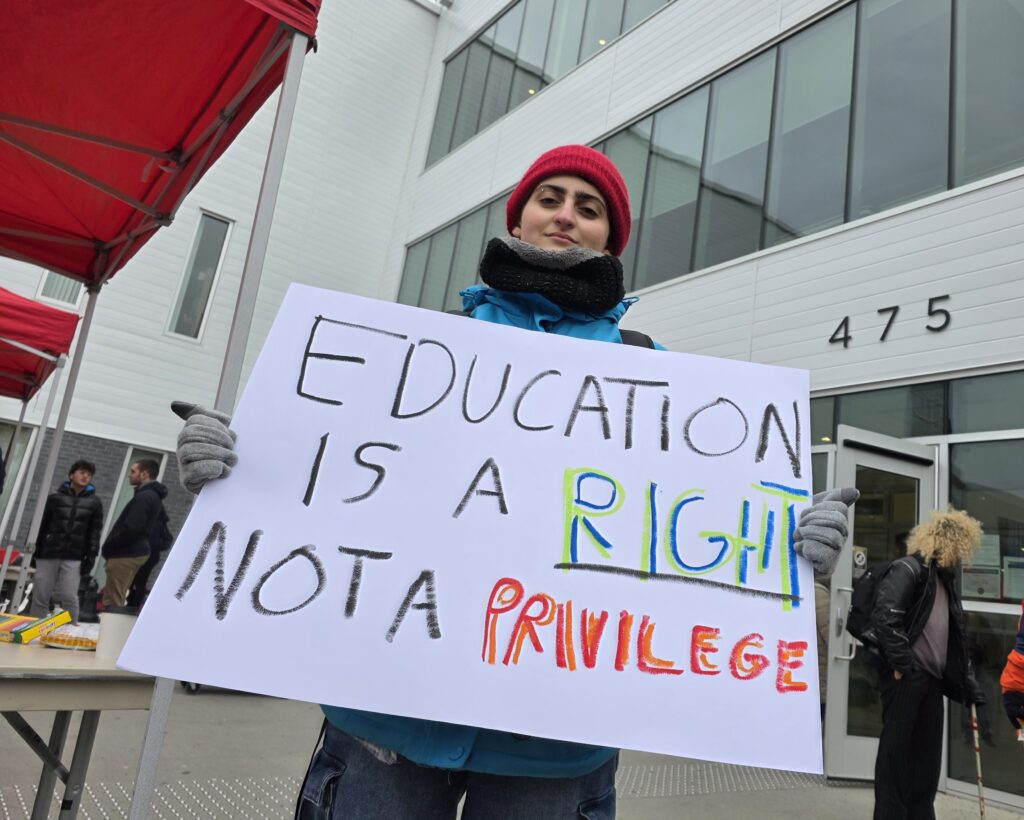 475
EDUCATION
IS A RIGHT
NOT A PRIVILEGE